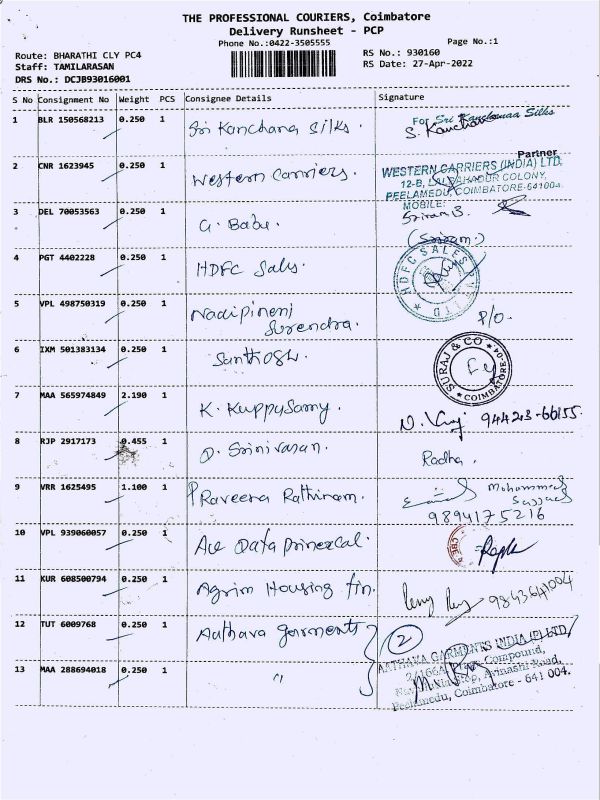 THE PROFESSIONAL COURIERS, Coimbatore
Delivery Runsheet - PCP
Phone No.:0422-3505555
Page No.:1
Route: BHARATHI CLY PC4
RS No.: 930160
Staff: TAMILARASAN
RS Date: 27-Apr-2022
DRS No.: DCJB93016001
S No Consignment No Weight PCS Consignee Details Signature
1 BLR 150568213 0.250 1 Sri Kanchana Silks.
For Sri Kanchanaa Silks
Partner
2 CNR 1623945 0.250 1 Western Carriers.
WESTERN CARRIERS (INDIA) LTD.
12-B, LAL BAHADUR COLONY,
PEELAMEDU, COIMBATORE-641004.
MOBILE:
3 DEL 70053563 0.250 1 G. Babu. Sriram B.
(Sriram.)
4 PGT 4402228 0.250 1 HDFC Sales.
HDFC SALES PVT LTD
5 VPL 498750319 0.250 1 Nadipineni Surendra. P/O.
6 IXM 501383134 0.250 1 Santhosh.
SURAJ & CO COIMBATORE-04
7 MAA 565974849 2.190 1 K. Kuppusamy. 94423-66155.
8 RJP 2917173 0.455 1 D. Srinivasan. Radha.
9 VRR 1625495 1.100 1 Praveena Rathinam. Mohammed
9894175216
10 VPL 939060057 0.250 1 Ace Data Prinercal.
11 KUR 608500794 0.250 1 Agrim Housing fin. 9843641004
12 TUT 6009768 0.250 1 Aathava garments 2
AATHAVA GARMENTS INDIA (P) LTD,
13 MAA 288694018 0.250 1 "
Compound,
Avinashi Road,
Peelamedu, Coimbatore - 641 004.